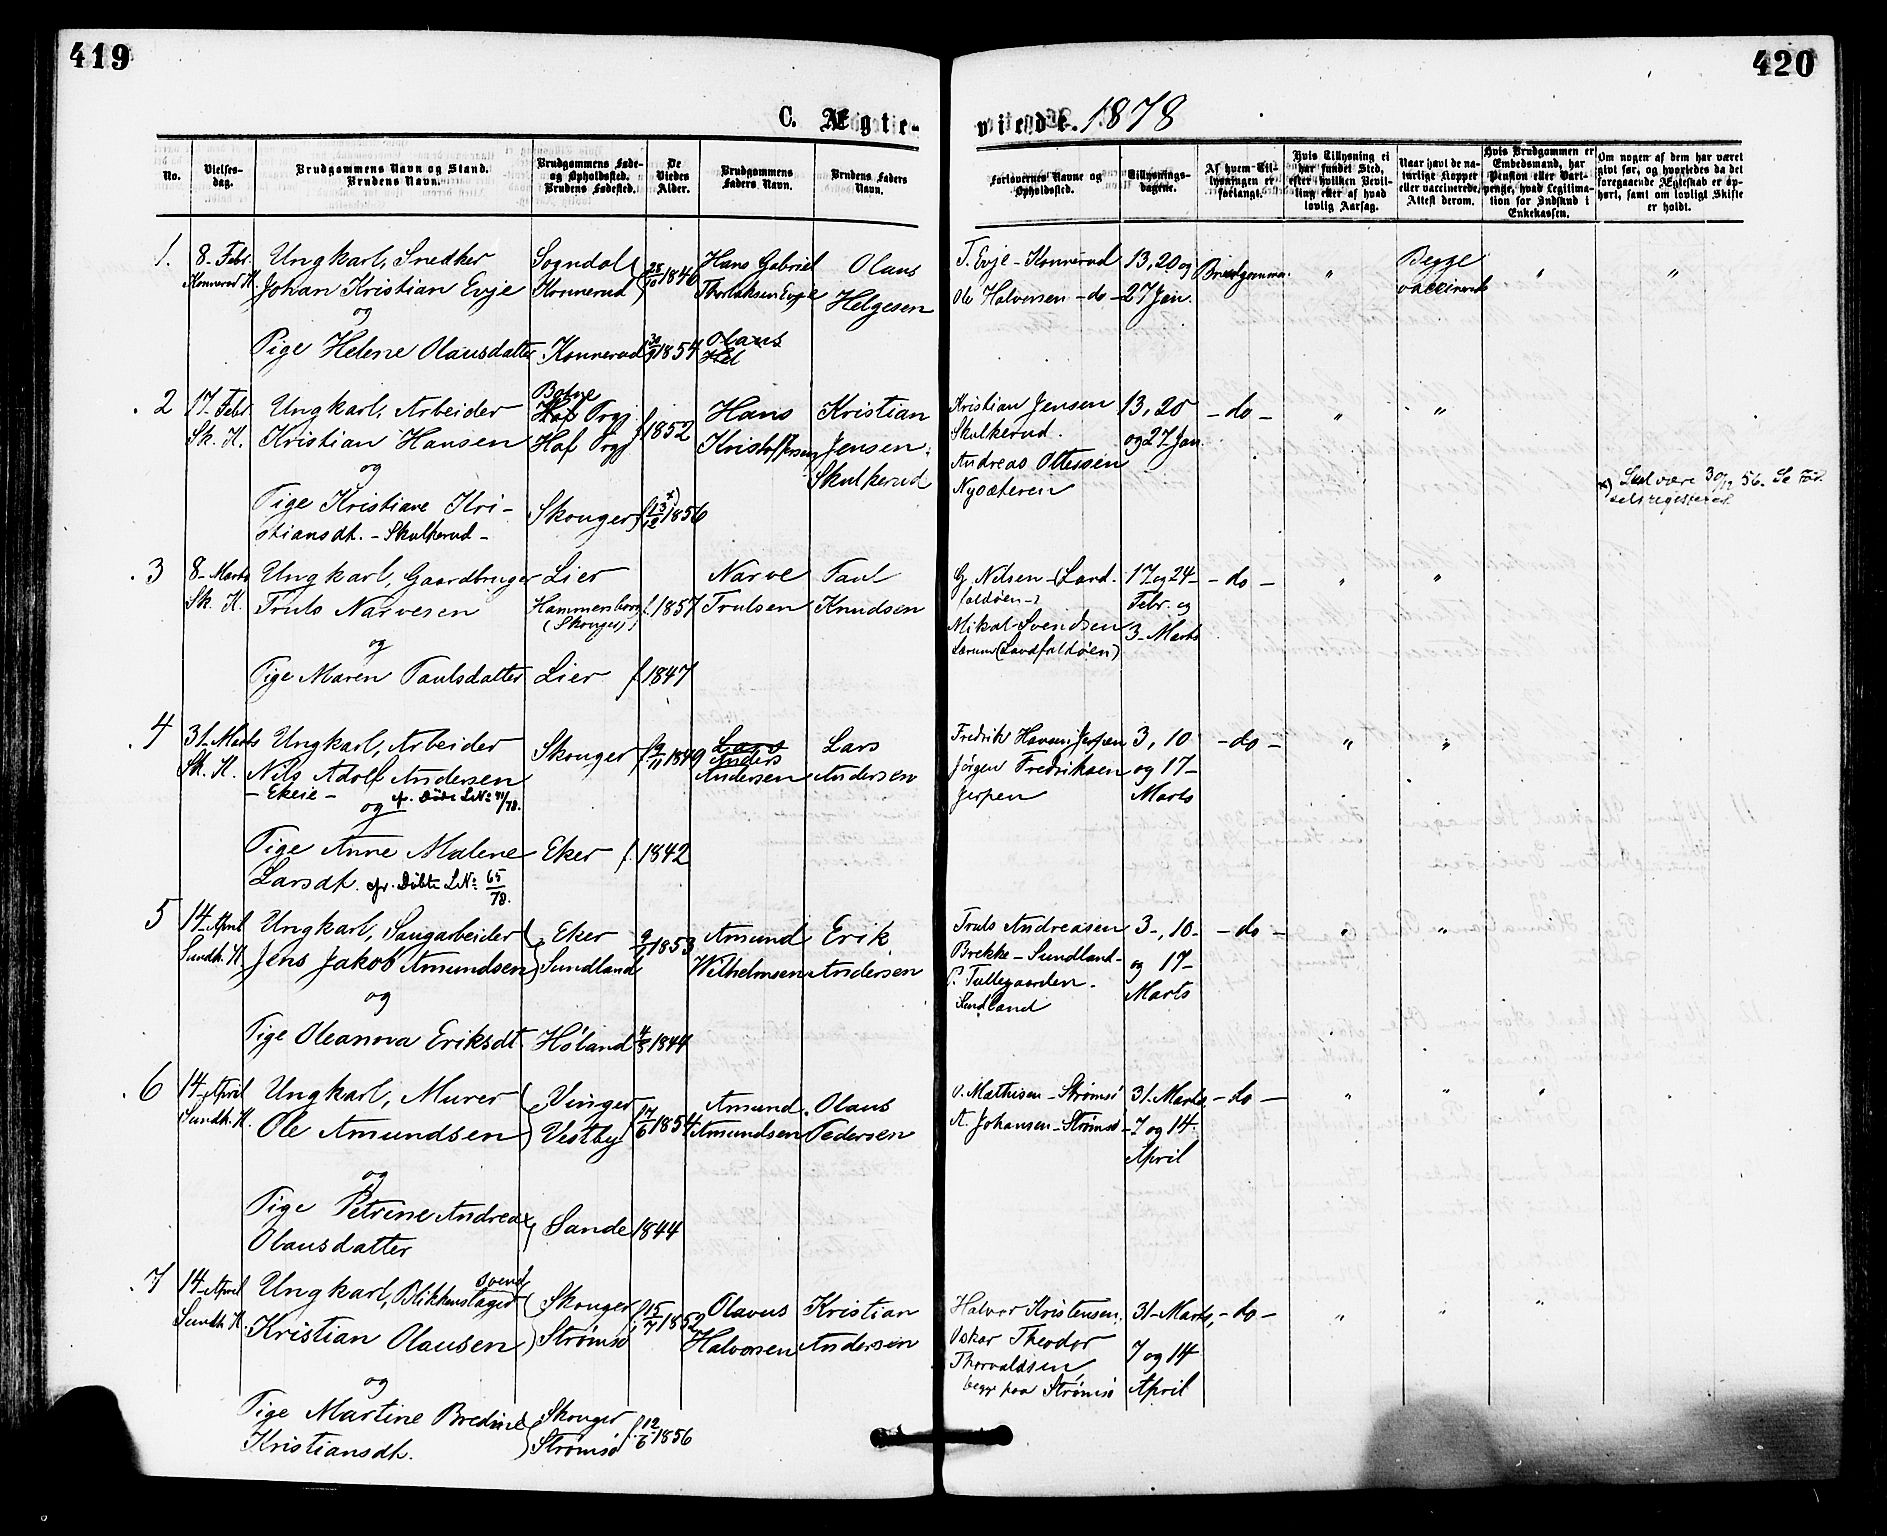 419
420
C. Ægte-
viede. 1878
No.
Vielses-
dag.
Brudgommens Navn og Stand.
Brudens Navn.
Brudgommens Føde-
og Opholdssted.
Brudens Fødested.
De
Viedes
Alder.
Brudgommens
Faders Navn.
Brudens Faders
Navn.
Forlovernes Navne og
Opholdssted.
Tillysnings-
dagene.
Af hvem Til-
lysningen er
forlangt.
Hvis Tillysning ei
har fundet Sted,
efter hvilken Bevil-
ling eller af hvad
lovlig Aarsag.
Naar havt de na-
turlige Kopper
eller vaccinerede,
Attest derom.
Hvis Brudgommen er
Embedsmand, har
Pension eller Vart-
penge, hvad Legitima-
tion for Indskud i
Enkekassen.
Om nogen af dem har været
givt før, og hvorledes da det
foregaaende Ægteskab er op-
hørt, samt om lovligt Skifte
er holdt.
1.
8- Febr.
Konnerud K.
Ungkarl, Snedker
Johan Kristian Evje
og
Pige Helene Olausdatter
Sogndal
Konnerud
Konnerud
28/10 1846
30/9 1854
Hans Gabriel
Thorlaksen Evje
Olaus
Hel
Olaus
Helgesen
T. Evje - Konnerud
Ole Halvorsen - do -
13, 20 og
27 Jan.
Brudgommen.
"
Begge
vaccinerede
"
"
2
17- Febr
Sk. K.
Ungkarl, Arbeider
Kristian Hansen
og
Pige Kristiane Kri-
stiansdt. - Skulkerud -
Botne
Haf Prgj
Haf Prgj
Skouger
1852
13/12 x) 1856
Hans
Kristoffersen
Kristian
Jensen
Skulkerud
Kristian Jensen
Skulkerud.
Andreas Ottessen
Nysæteren
13, 20
og 27 Jan.
- do -
"
"
x) Skal være 30/12 56. Se Fød-
selsregisteret.
3
8- Marts
Sk. K.
Ungkarl, Gaardbruger
Truls Narvesen
og
Pige Maren Paulsdatter
Lier
Hammersborg
(Skouger)
Lier
1857
1847
Narve
Trulsen
Paul
Knudsen
G. Nilsen - (Land-
faldøen-)
Mikal Svendsen
Lærum (Landfaldøen)
17- og 24-
Febr. og
3- Marts
- do -
"
"
4
31- Marts
Sk. K.
Ungkarl, Arbeider
Nils Adolf Andersen
- Ekeie -
og cfr. Døde LNo 41/78.
Pige Anne Malene
Larsdt. cfr. Døbte LNo 65/78.
Skouger
Eker
9/11 1849
1842
Lars
Anders
Andersen
Lars
Andersen
Fredrik Hansen Jerpen
Jørgen Fredriksen
Jerpen
3, 10
og 17-
Marts
- do -
"
"
5
14- April
Sundh. K.
Ungkarl, Saugarbeider
Jens Jakob Amundsen
og
Pige Oleanova Eriksdt.
Eker
Sundland
Høland
1853
4/8 1844
Amund
Wilhelmsen
Erik
Andersen
Truls Andreasen
Brekke - Sundland -
P. Tullegaarden -
Sundland
3-, 10-
og 17-
Marts
- do -
"
"
6
14- April
Sundh. K.
Ungkarl, Murer
Ole Amundsen
og
Pige Petrine Andrea
Olausdatter
Vinger
Vestby
Sande
17/6 1854
1844
Amund
Amundsen
Olaus
Pedersen
O. Mathisen - Strømsø
A. Johansen - Strømsø
31- Marts
- 7 og 14-
April
- do -
"
"
"
7
14- April
Sundh. K.
Ungkarl, Blikkenslagersvend
Kristian Olausen
og
Pige Martine Bredine
Kristiansdt.
Skouger
Strømsø
Skouger
Strømsø
15/7 1852
12/6 1856
Olavus
Halvorsen
Kristian
Andersen
Halvor Kristensen,
Oskar Theodor
Thorvaldsen
begge paa Strømsø
31- Marts,
7 og 14
April
- do -
"
"
"